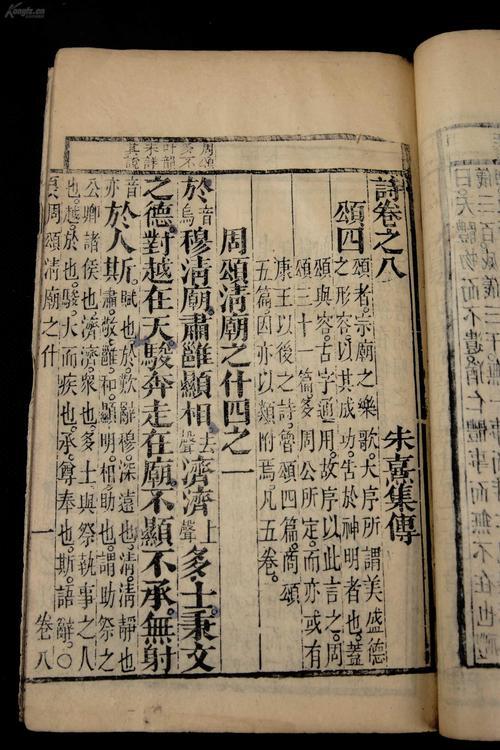 Kongfz.cn
儀三百威儀三千無一
曰天體物而不遺猶仁體事而無
周頌
多不
叶韻
未詳
其說
詩卷之八 朱熹集傳
頌四
頌者、宗廟之樂歌。大序所謂美盛德
之形容。以其成功、告於神明者也。蓋
頌與容、古字通用。故序以此言之。周
頌三十一篇。多周公所定。而亦或有
康王以後之詩。魯頌四篇。商頌
五篇。因亦以類附焉。凡五卷。
周頌清廟之什四之一
於音烏穆清廟。肅雝顯相去聲濟濟上聲多士。秉文
之德。對越在天。駿奔走在廟。不顯不承。無射
音亦於人斯。賦也。於、歎辭。穆、深遠也。清、清靜也
肅、敬。雝、和。顯、明。相、助也。謂助祭之
公卿諸侯也。濟濟、衆也。多士、與祭執事之人
也。越、於也。駿、大而疾也。承、尊奉也。斯、語辭。〇
周頌清廟之什 一 卷八